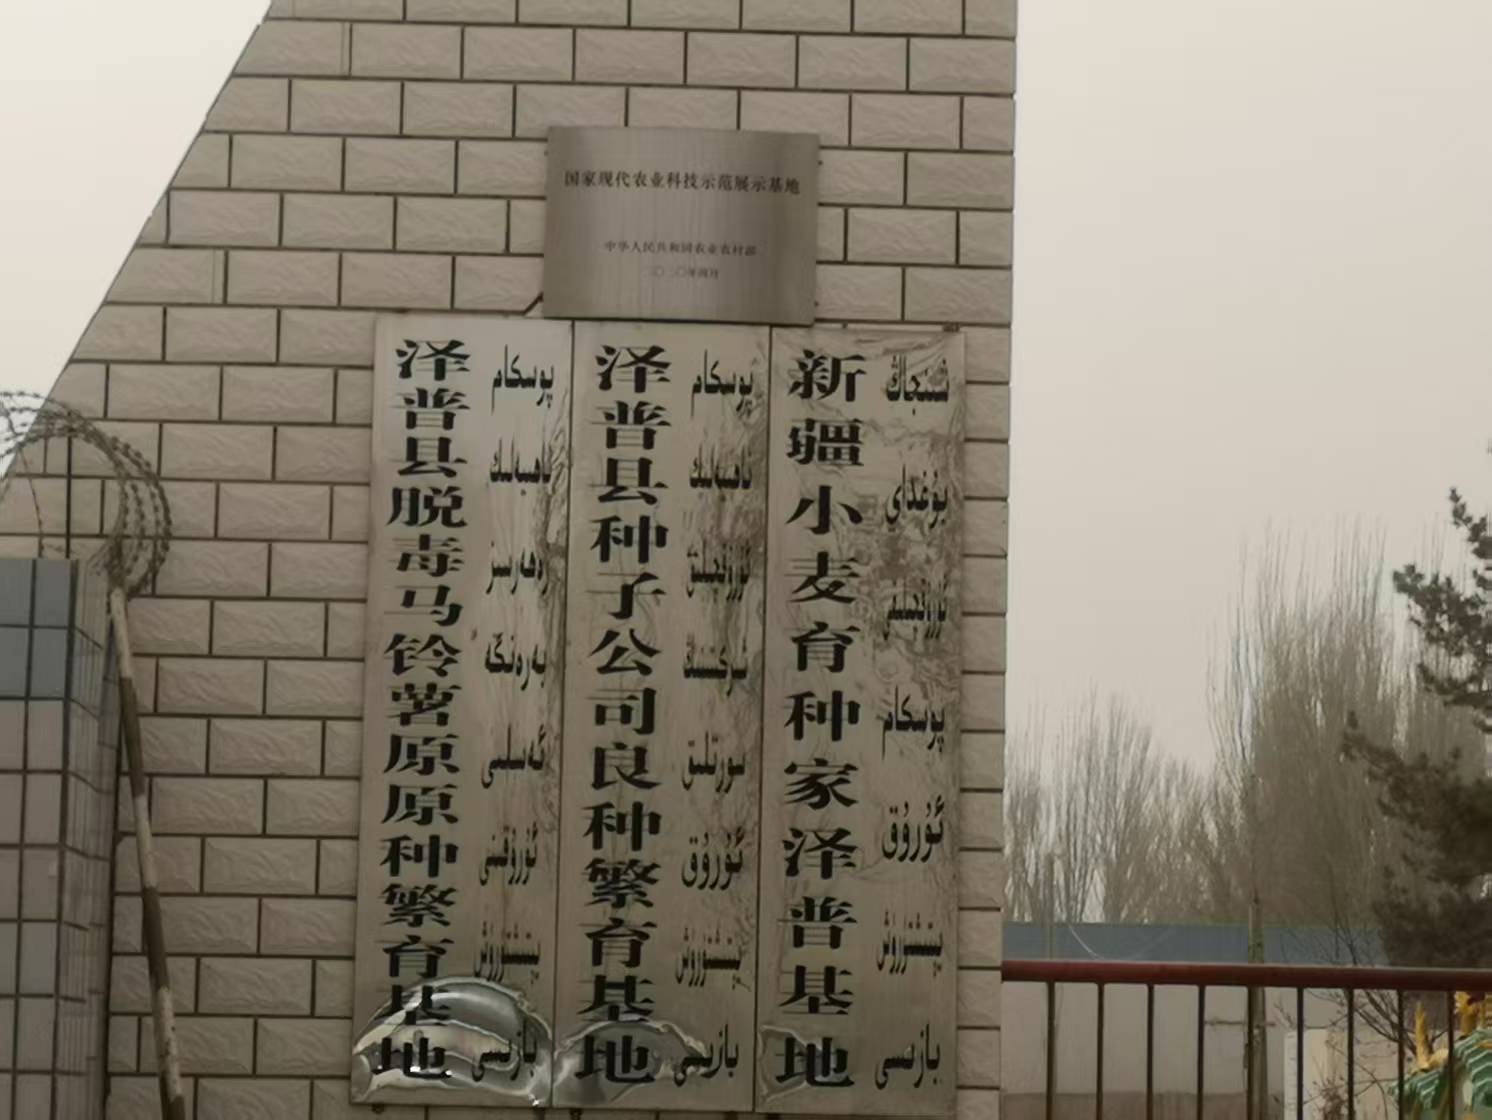 国家现代农业科技示范展示基地
中华人民共和国农业农村部
二〇二〇年四月
泽普县脱毒马铃薯原原种繁育基地
پوسكام ناھىيەلىك ۋىرۇسسىز بەرەڭگە ئەسلىي ئۇرۇقىنى يېتىشتۈرۈش بازىسى
泽普县种子公司良种繁育基地
پوسكام ناھىيەلىك ئۇرۇقچىلىق شىركىتىنىڭ سورتلۇق ئۇرۇق يېتىشتۈرۈش بازىسى
新疆小麦育种家泽普基地
شىنجاڭ بۇغداي ئۇرۇقچىلىق پوسكام ئۇرۇق يېتىشتۈرۈش بازىسى